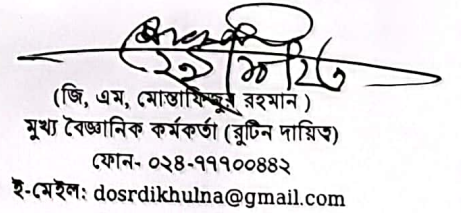 (জি, এম, মোস্তাফিজুর রহমান )
মুখ্য বৈজ্ঞানিক কর্মকর্তা (রুটিন দায়িত্ব)
ফোন- ০২৪-৭৭৭০০৪৪২
ই-মেইল: dosrdikhulna@gmail.com